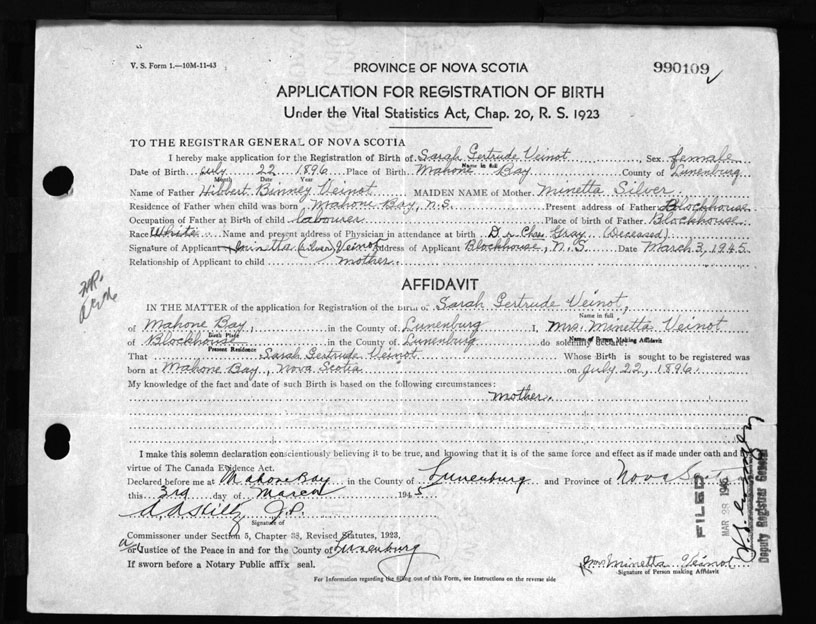 V. S. Form 1.—10M-11-43
PROVINCE OF NOVA SCOTIA
990109
APPLICATION FOR REGISTRATION OF BIRTH
Under the Vital Statistics Act, Chap. 20, R. S. 1923
TO THE REGISTRAR GENERAL OF NOVA SCOTIA
I hereby make application for the Registration of Birth of Sarah Gertrude Veinot, Sex female
Name in full
Date of Birth July 22 1896 Place of Birth Mahone Bay County of Lunenburg
Month Date Year
Name of Father Hibbert Binney Veinot MAIDEN NAME of Mother Minetta Silver
Residence of Father when child was born, Mahone Bay, N.S. Present address of Father Blockhouse
Occupation of Father at Birth of child labourer Place of birth of Father Blockhouse
Race White Name and present address of Physician in attendance at birth Dr Chas Gray (Deceased)
Signature of Applicant Minetta (Silver) Veinot Address of Applicant Blockhouse, N.S. Date March 3, 1945
Relationship of Applicant to child mother
AFFIDAVIT
IN THE MATTER of the application for Registration of the Birth of Sarah Gertrude Veinot,
Name in full
of Mahone Bay, in the County of Lunenburg I, Mrs. Minetta Veinot
Birth Place Name of Person Making Affidavit
of Blockhouse in the County of Lunenburg do solemnly declare:
Present Residence
That Sarah Gertrude Veinot Whose Birth is sought to be registered was
born at Mahone Bay, Nova Scotia on July 22, 1896.
My knowledge of the fact and date of such Birth is based on the following circumstances:
mother.
I make this solemn declaration conscientiously believing it to be true, and knowing that it is of the same force and effect as if made under oath and by
virtue of The Canada Evidence Act.
Declared before me at Mahone Bay in the County of Lunenburg and Province of Nova Scotia
this 3rd day of March 1945
J.P.
Signature of
Commissioner under Section 5, Chapter 38, Revised Statutes, 1923,
a or Justice of the Peace in and for the County of Lunenburg
If sworn before a Notary Public affix seal.
Mrs Minetta Veinot
Signature of Person making Affidavit
For Information regarding the filling out of this Form, see Instructions on the reverse side
FILED
MAR 28 1945
Deputy Registrar General